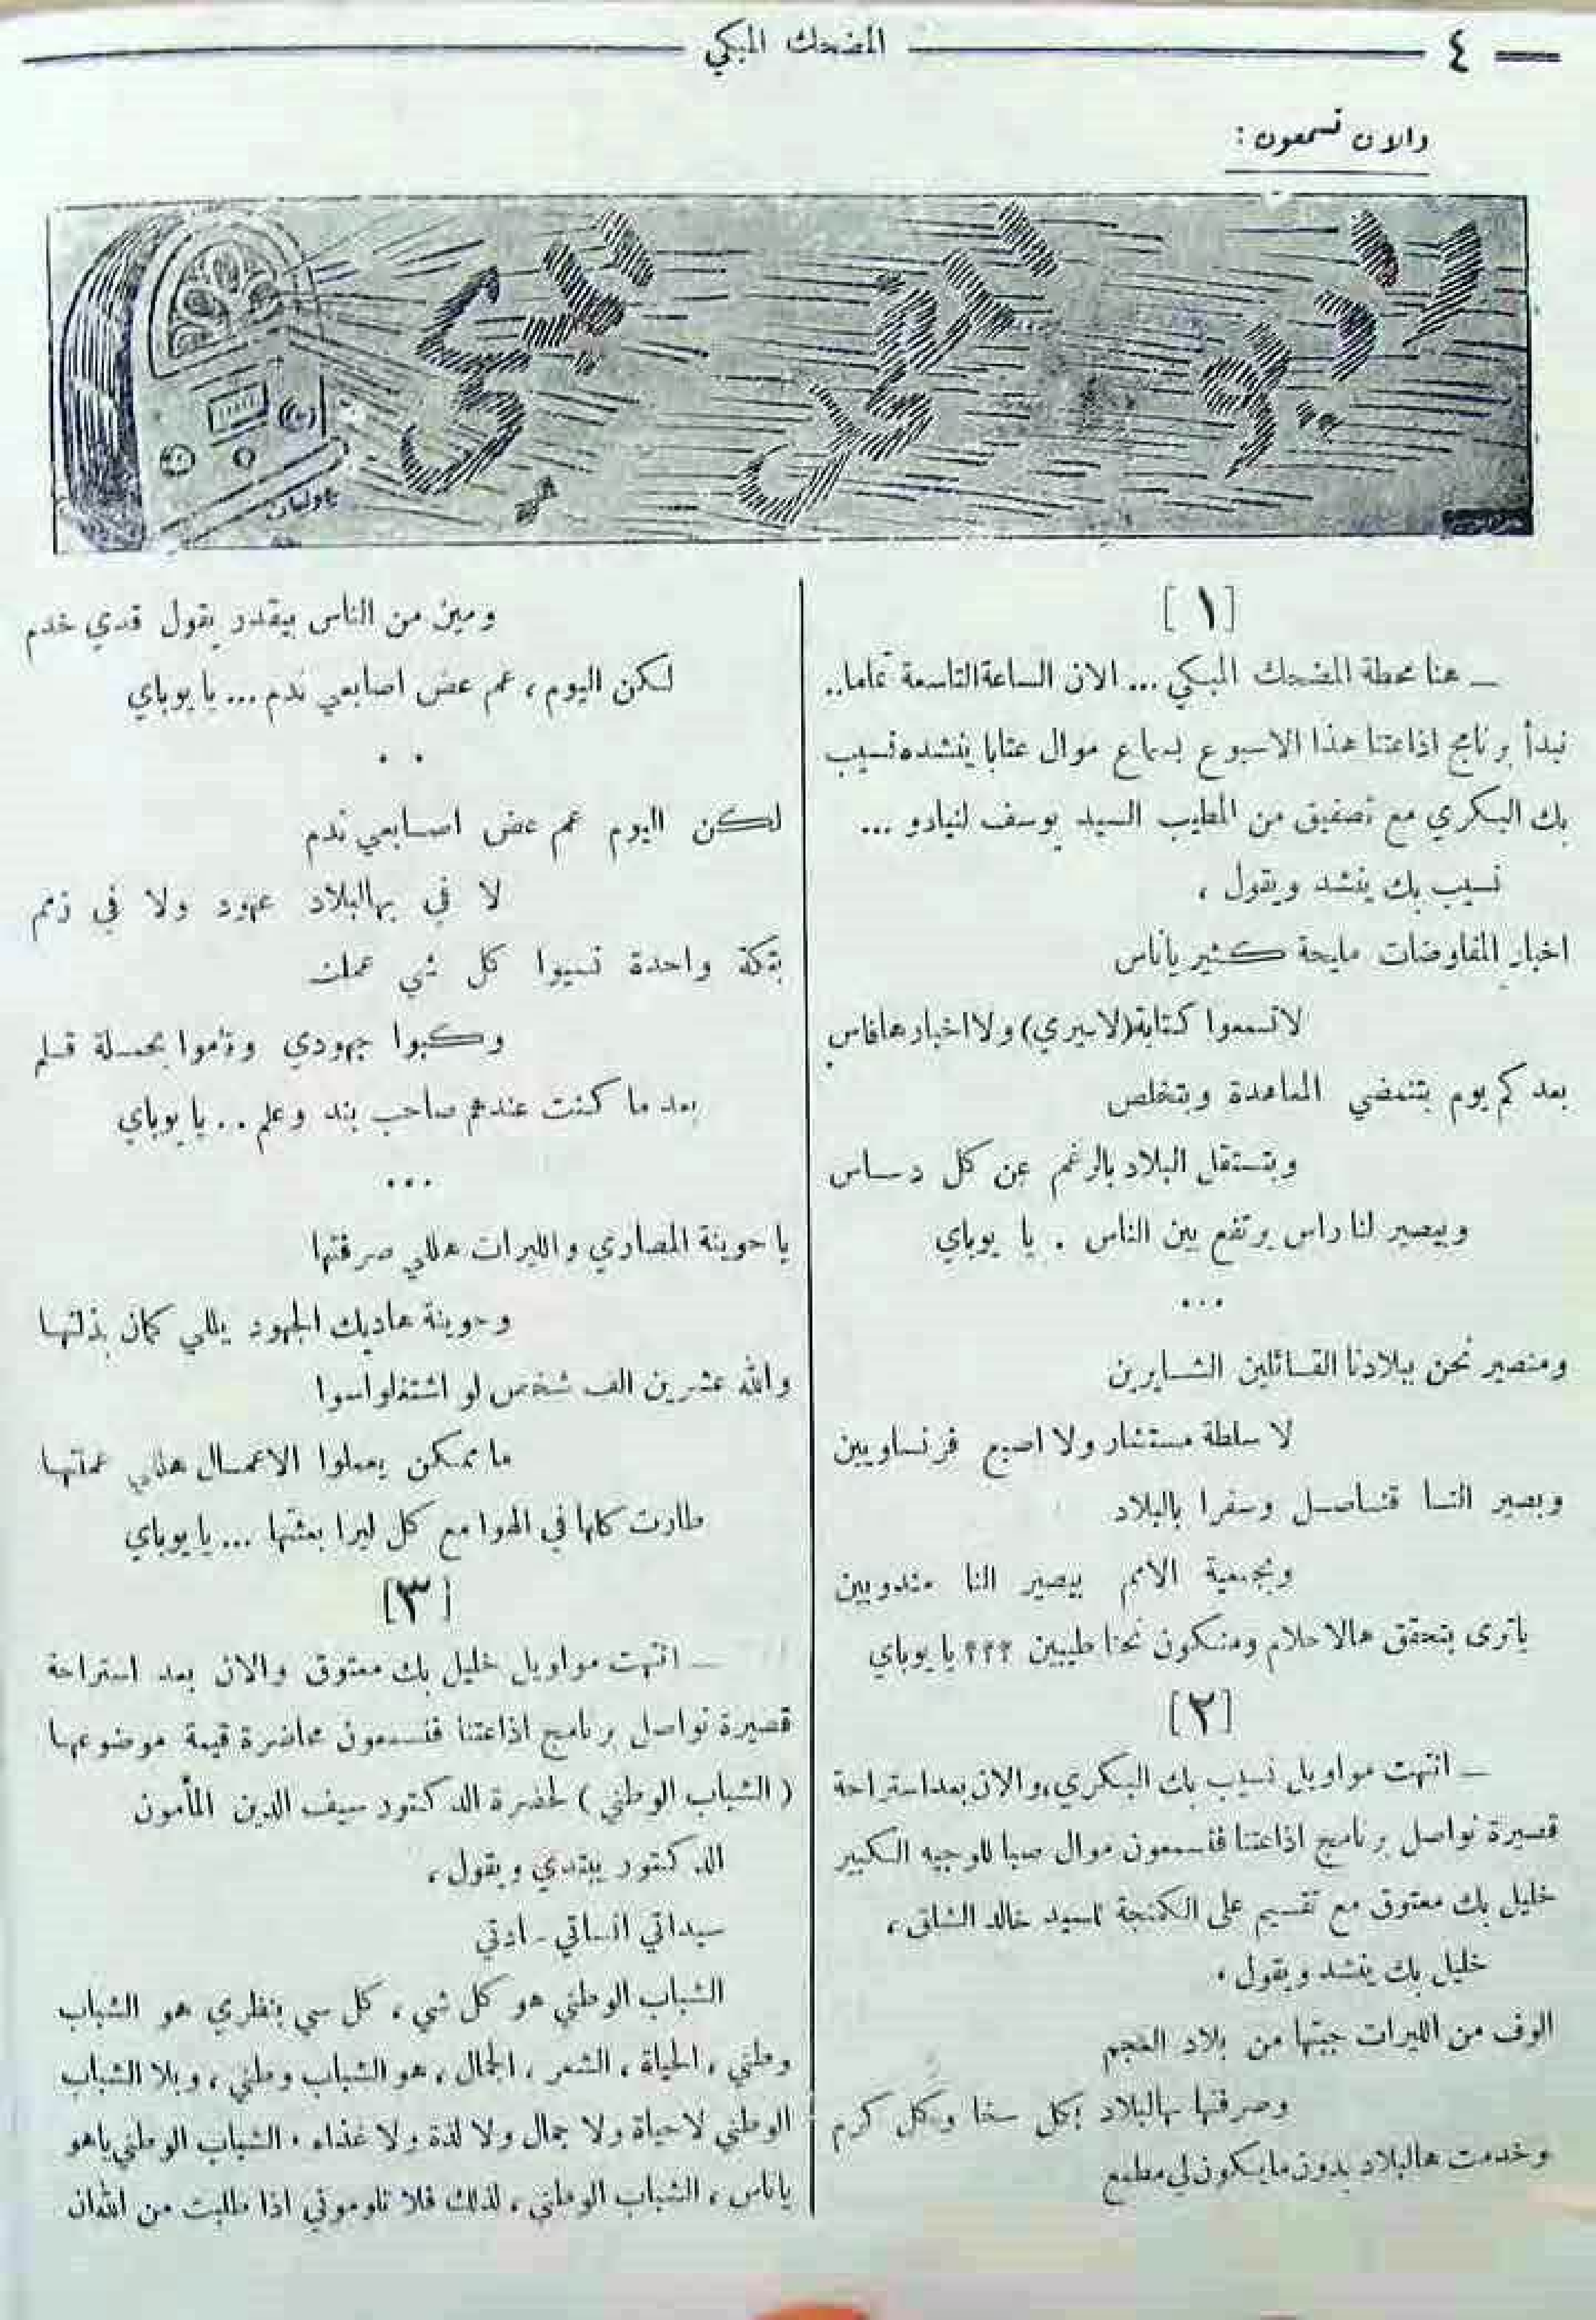 ٤
المضحك المبكي
والان تسمعون :
راديو المضحك المبكي
[١]
ـ هنا محطة المضحك المبكي ... الان الساعة التاسعة تماما..
نبدأ برنامج اذاعتنا هذا الاسبوع بسماع موال عتابا ينشده نسيب
بك البكري مع تصفيق من المطيب السيد يوسف لنيادو ...
نسيب بك ينشد ويقول ،
اخبار المفاوضات مليحة كثير ياناس
لاتسمعوا كتابة (لابيري) ولا اخبار هافاس
بعد كم يوم بتنمضي المعاهدة وبتخلص
وبتستقل البلاد بالرغم عن كل دساس
وبيصير لنا راس يرتفع بين الناس . يا يوباي
...
ومنصير نحن ببلادنا القائلين الشايرين
لا سلطة مستشار ولا اصبع فرنساويين
وبصير النا قناصل وسفرا بالبلاد
وبجمعية الامم بيصير النا مندوبين
ياترى بتحقق هالاحلام ومنكون نحنا طيبين ؟؟؟ يا يوباي
[٢]
ـ انتهت مواويل نسيب بك البكري، والان بعد استراحة
قصيرة نواصل برنامج اذاعتنا فتسمعون موال صبا للوجيه الكبير
خليل بك معتوق مع تقسيم على الكمنجة للسيد خالد الشلق ،
خليل بك ينشد ويقول ،
الوف من الليرات جبتها من بلاد العجم
وصرفتها بهالبلاد بكل سخا وبكل كرم
وخدمت هالبلاد بدون مايكون لي مطمع
ومين من الناس بيقدر يقول قدي خدم
لكن اليوم ، عم عض اصابعي ندم ... يا يوباي
. .
لكن اليوم عم عض اصابعي ندم
لا في بهالبلاد عهود ولا في ذمم
بتكة واحدة نسيوا كل شي عملت
وكبوا جهودي وقاموا بحملة قلم
بعد ما كنت عندهم صاحب بند وعلم .. يا يوباي
...
يا حوينة المصاري والليرات هللي صرفتها
وحوينة هاديك الجهود يللي كمان بذلتها
والله عشرين الف شخص لو اشتغلوا سوا
ما ممكن يعملوا الاعمال هللي عملتها
طارت كلها في الهوا مع كل ليرا بعثتها ... يا يوباي
[٣]
ـ انتهت مواويل خليل بك معتوق والان بعد استراحة
قصيرة نواصل برنامج اذاعتنا فتسمعون محاضرة قيمة موضوعها
( الشباب الوطني ) لحضرة الدكتور سيف الدين المأمون
الدكتور يبتدي ويقول ،
سيداتي انساتي سادتي
الشباب الوطني هو كل شي ، كل سي بنظري هو الشباب
وطني ، الحياة ، الشعر ، الجمال ، هو الشباب وطني ، وبلا الشباب
الوطني لاحياة ولا جمال ولا لذة ولا غذاء . الشباب الوطني ياهو
ياناس ، الشباب الوطني ، لذلك فلا تلوموني اذا طلبت من الله ان